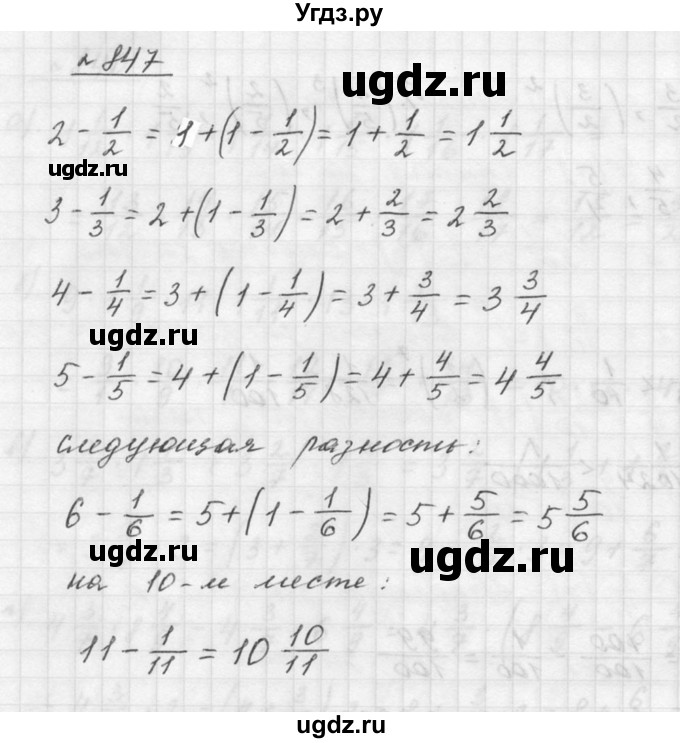 Угдз.ру
№ 847
ugdz.ru
2 - 1/2 = 1 + (1 - 1/2) = 1 + 1/2 = 1 1/2
ugdz.ru
3 - 1/3 = 2 + (1 - 1/3) = 2 + 2/3 = 2 2/3
4 - 1/4 = 3 + (1 - 1/4) = 3 + 3/4 = 3 3/4
ugdz.ru
5 - 1/5 = 4 + (1 - 1/5) = 4 + 4/5 = 4 4/5
следующая разность:
6 - 1/6 = 5 + (1 - 1/6) = 5 + 5/6 = 5 5/6
ugdz.ru ugdz.ru
на 10-м месте:
11 - 1/11 = 10 10/11
ugdz.ru
ugdz.ru